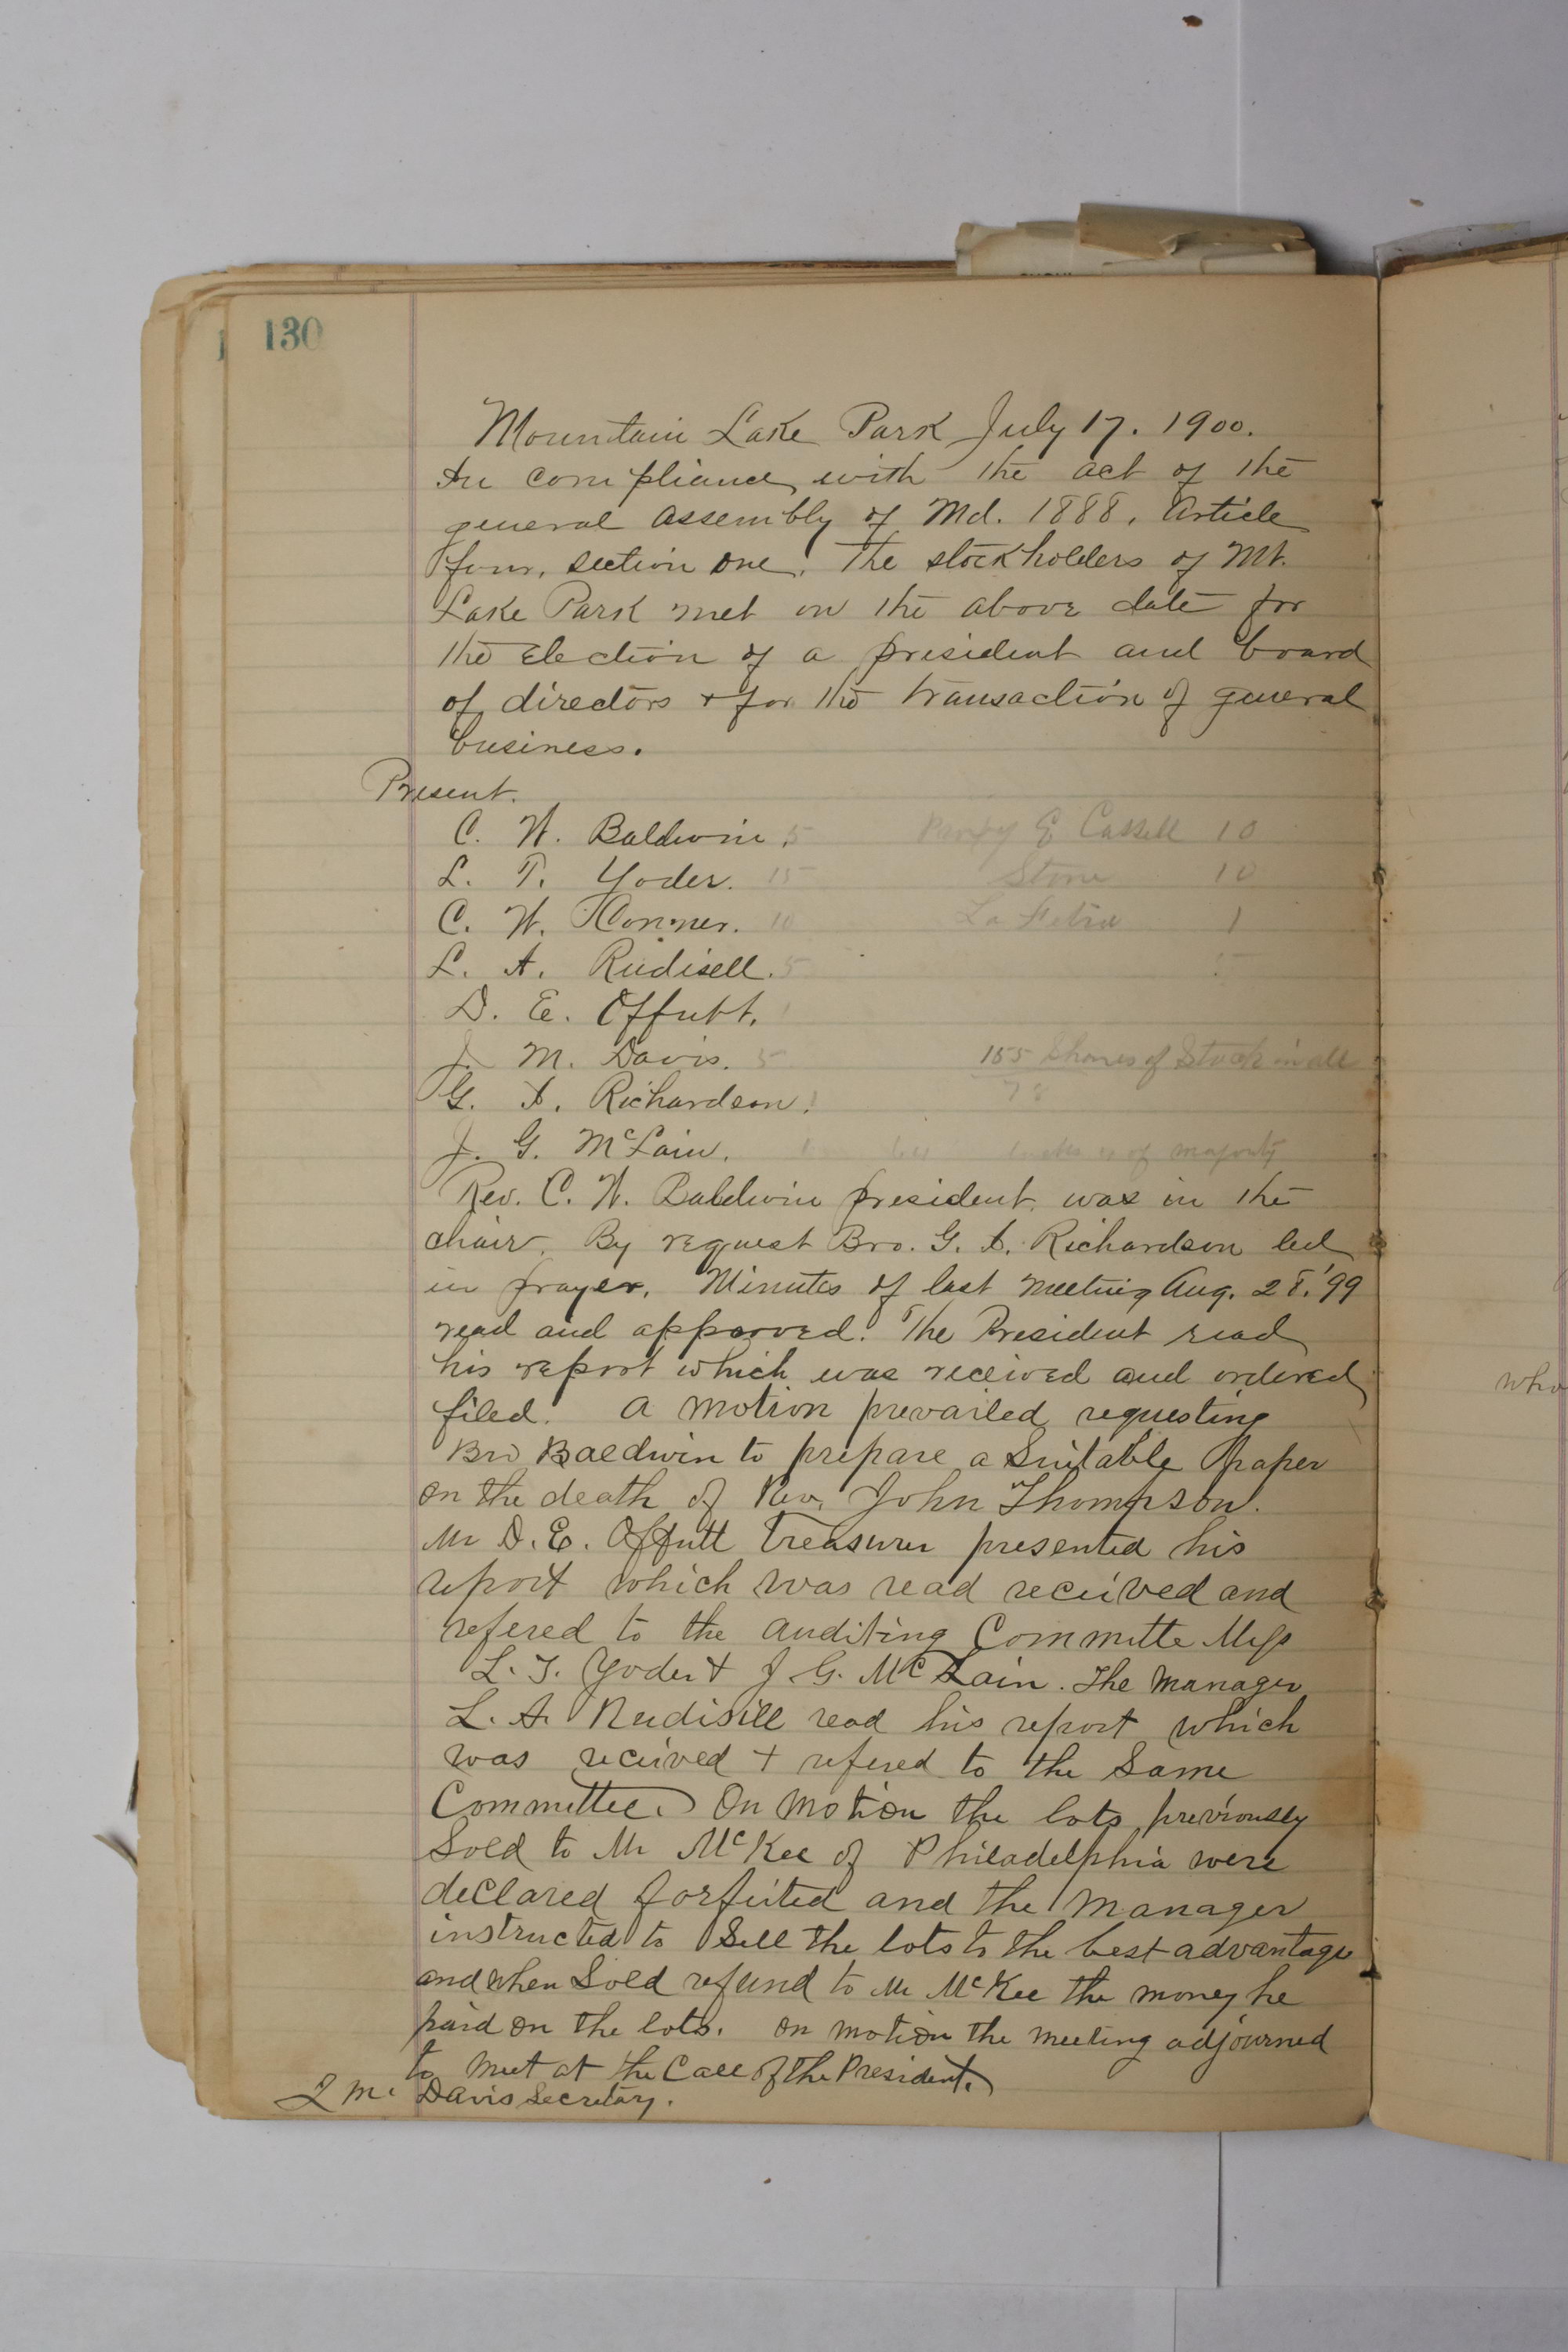 130
Mountain Lake Park July 17. 1900.
In compliance with the act of the
general assembly of Md. 1888, Article
four, section one, the stockholders of Mt.
Lake Park met on the above date for
the election of a president and board
of directors + for the transaction of general
business.
Present.
C. W. Baldwin. 5 Cassell 10
L. T. Yoder. 15 Stone 10
C. W. Conner. 10 La Fetra 1
L. A. Rudisell. 5
D. E. Offutt. 1
J. M. Davis. 5 155 Shares of Stock in all
G. A. Richardson. 1 78
J. G. McLain. of majority
Rev. C. W. Baldwin president, was in the
chair. By request Bro. G. A. Richardson led
in prayer. Minutes of last meeting Aug. 28, '99
read and approved. The President read
his report which was received and ordered
filed. A motion prevailed requesting
Bro Baldwin to prepare a Suitable paper
on the death of Rev. John Thompson.
Mr D. E. Offutt Treasurer presented his
report which was read received and
refered to the auditing Committe Mess
L. T. Yoder + J. G. McLain. The Manager
L. A. Rudisill read his report which
was recieved + refered to the Same
Committee. On Motion the lots previously
Sold to Mr McKee of Philadelphia were
declared forfeited and the Manager
instructed to Sell the lots to the best advantage
and when Sold refund to Mr McKee the money he
paid on the lots. on motion the meeting adjourned
to meet at the Call of the President.
J M. Davis Secretary.
who